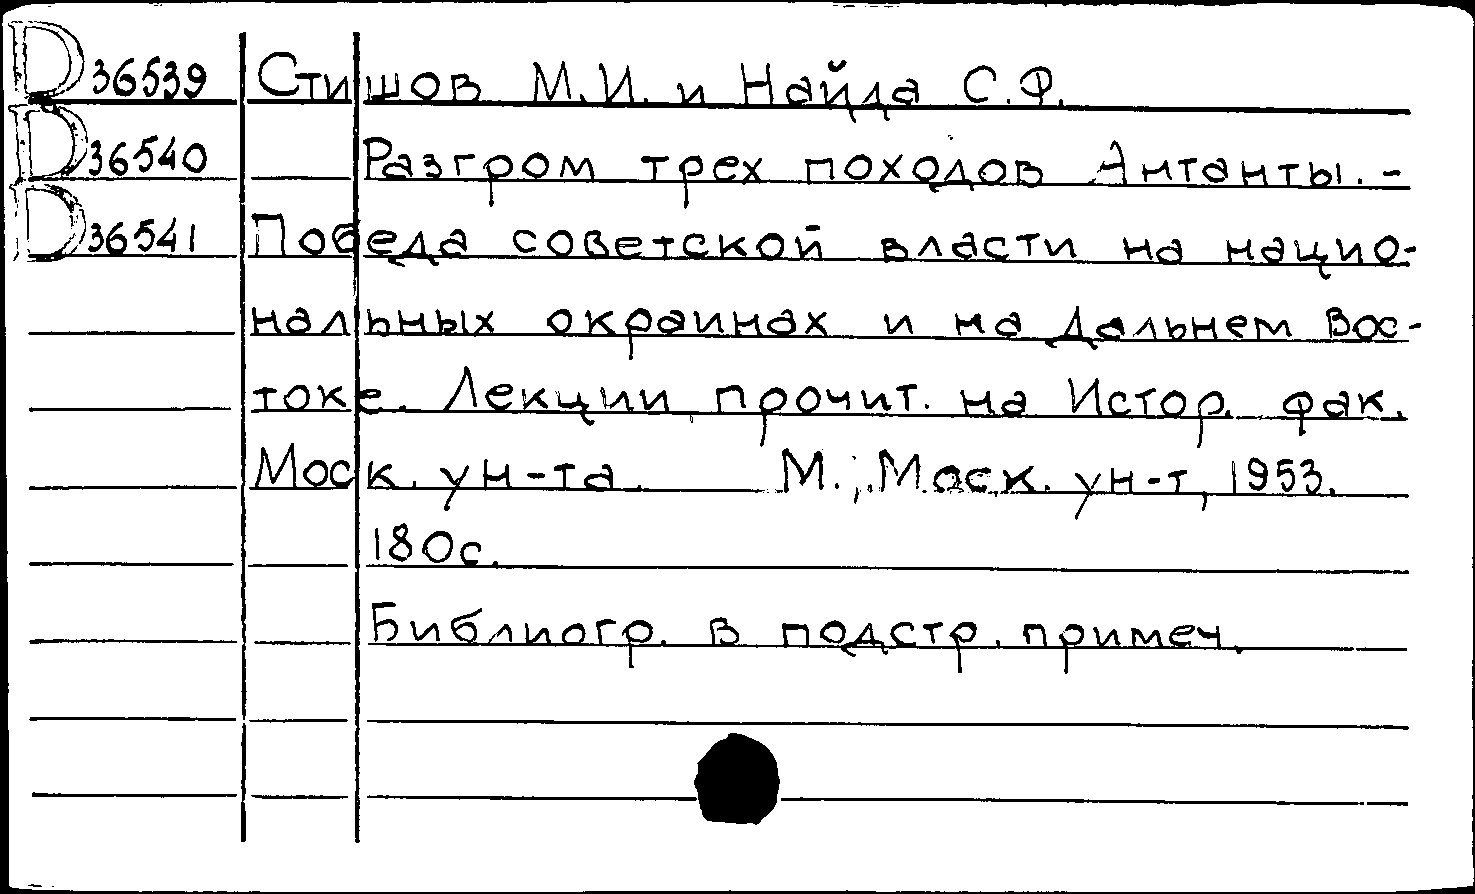 D 36539 Стишов М.И. и Найда С.Ф.
D 36540 Разгром трех походов Антанты. -
D 36541 Победа советской власти на нацио-
нальных окраинах и на Дальнем Вос-
токе. Лекции, прочит. на Истор. фак.
Моск. ун-та. М., Моск. ун-т, 1953.
180с.
Библиогр. в подстр. примеч.